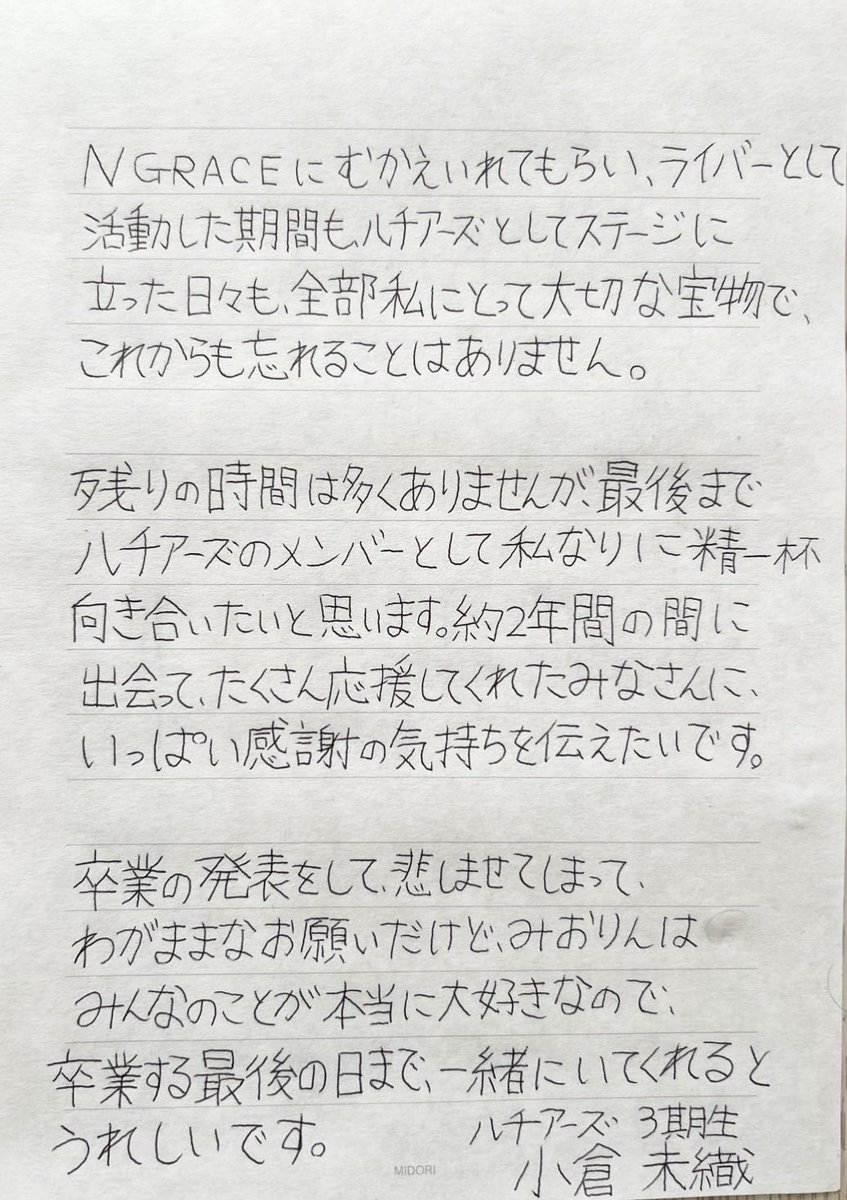 N GRACEにむかえいれてもらい、ライバーとして
活動した期間も、ルチアーズとしてステージに
立った日々も、全部私にとって大切な宝物で、
これからも忘れることはありません。
残りの時間は多くありませんが、最後まで
ルチアーズのメンバーとして私なりに精一杯
向き合いたいと思います。約2年間の間に
出会って、たくさん応援してくれたみなさんに、
いっぱい感謝の気持ちを伝えたいです。
卒業の発表をして、悲しませてしまって、
わがままなお願いだけど、みおりんは
みんなのことが本当に大好きなので、
卒業する最後の日まで、一緒にいてくれると
うれしいです。
ルチアーズ 3期生
小倉 未織
MIDORI